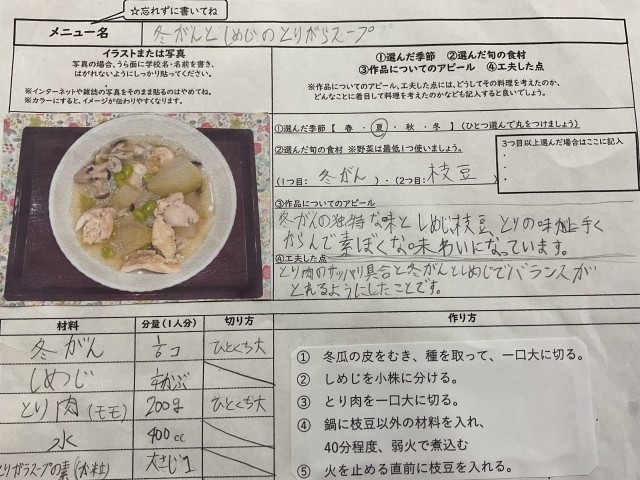 ☆忘れずに書いてね
メニュー名
冬がんとしめじのとりがらスープ
イラストまたは写真
写真の場合、うら面に学校名・名前を書き、
はがれないようにしっかり貼ってください。
※インターネットや雑誌の写真をそのまま貼るのはやめてね。
※カラーにすると、イメージが伝わりやすくなります。
①選んだ季節 ②選んだ旬の食材
③作品についてのアピール ④工夫した点
※作品についてのアピール、工夫した点には、どうしてその料理を考えたのか、
どんなことに着目して料理を考えたのかなども記入すると良いでしょう。
①選んだ季節【 春 ・ 夏 ・ 秋 ・ 冬 】(ひとつ選んで丸をつけましょう)
②選んだ旬の食材 ※野菜は最低1つ使いましょう。
(1つ目: 冬がん )・(2つ目: 枝豆
3つ目以上選んだ場合はここに記入
・
・
・
③作品についてのアピール
冬がんの独特な味としめじ枝豆、とりの味が上手く
からんで素ぼくな味わいになっています。
④工夫した点
とり肉のサッパリ具合と冬がんとしめじでバランスが
とれるようにしたことです。
材料 分量(1人分) 切り方 作り方
冬がん 1/6コ ひとくち大
しめじ かぶ
とり肉(モモ) 200g ひとくち大
水 400cc
とりガラスープの素(か粒) 大さじ1
① 冬瓜の皮をむき、種を取って、一口大に切る。
② しめじを小株に分ける。
③ とり肉を一口大に切る。
④ 鍋に枝豆以外の材料を入れ、
40分程度、弱火で煮込む
⑤ 火を止める直前に枝豆を入れる。